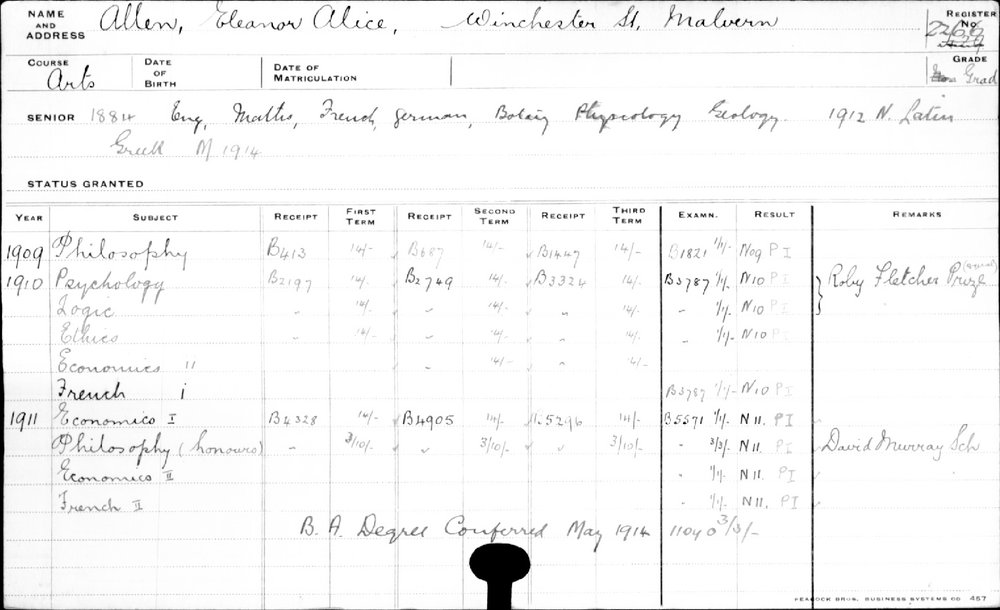 NAME AND ADDRESS Allen, Eleanor Alice, Winchester St, Malvern REGISTER No
COURSE Arts DATE OF BIRTH DATE OF MATRICULATION GRADE Grad
SENIOR 1884 Eng, Maths, French, German, Botany Physiology Geology. 1912 N. Latin
Greek M 1914
STATUS GRANTED
YEAR SUBJECT RECEIPT FIRST TERM RECEIPT SECOND TERM RECEIPT THIRD TERM EXAMN. RESULT REMARKS
1909 Philosophy B413 14/- B687 14/- B1447 14/- B1821 1/1/- N09 PI
1910 Psychology B2197 14/- B2749 14/- B3324 14/- B3787 1/1/- N10 PI Roby Fletcher Prize (equal)
Logic " 14/- " 14/- " 14/- " 1/1/- N10 PI
Ethics 14/- " 14/- " 14/- " 1/1/- N10 PI
Economics II " 14/- 14/-
French i B3787 1/1/- N10 PI
1911 Economics I B4328 14/- B4905 14/- 5296 14/- B5571 1/1/- N11. PI
Philosophy (honours) - 3/10/- " 3/10/- " 3/10/- - 3/3/- N11. PI David Murray Sch
Economics II - 1/1/- N11. PI
French II - 1/1/- N11. PI
B. A. Degree Conferred May 1914 11040 3/3/-
PEACOCK BROS. BUSINESS SYSTEMS CO 457